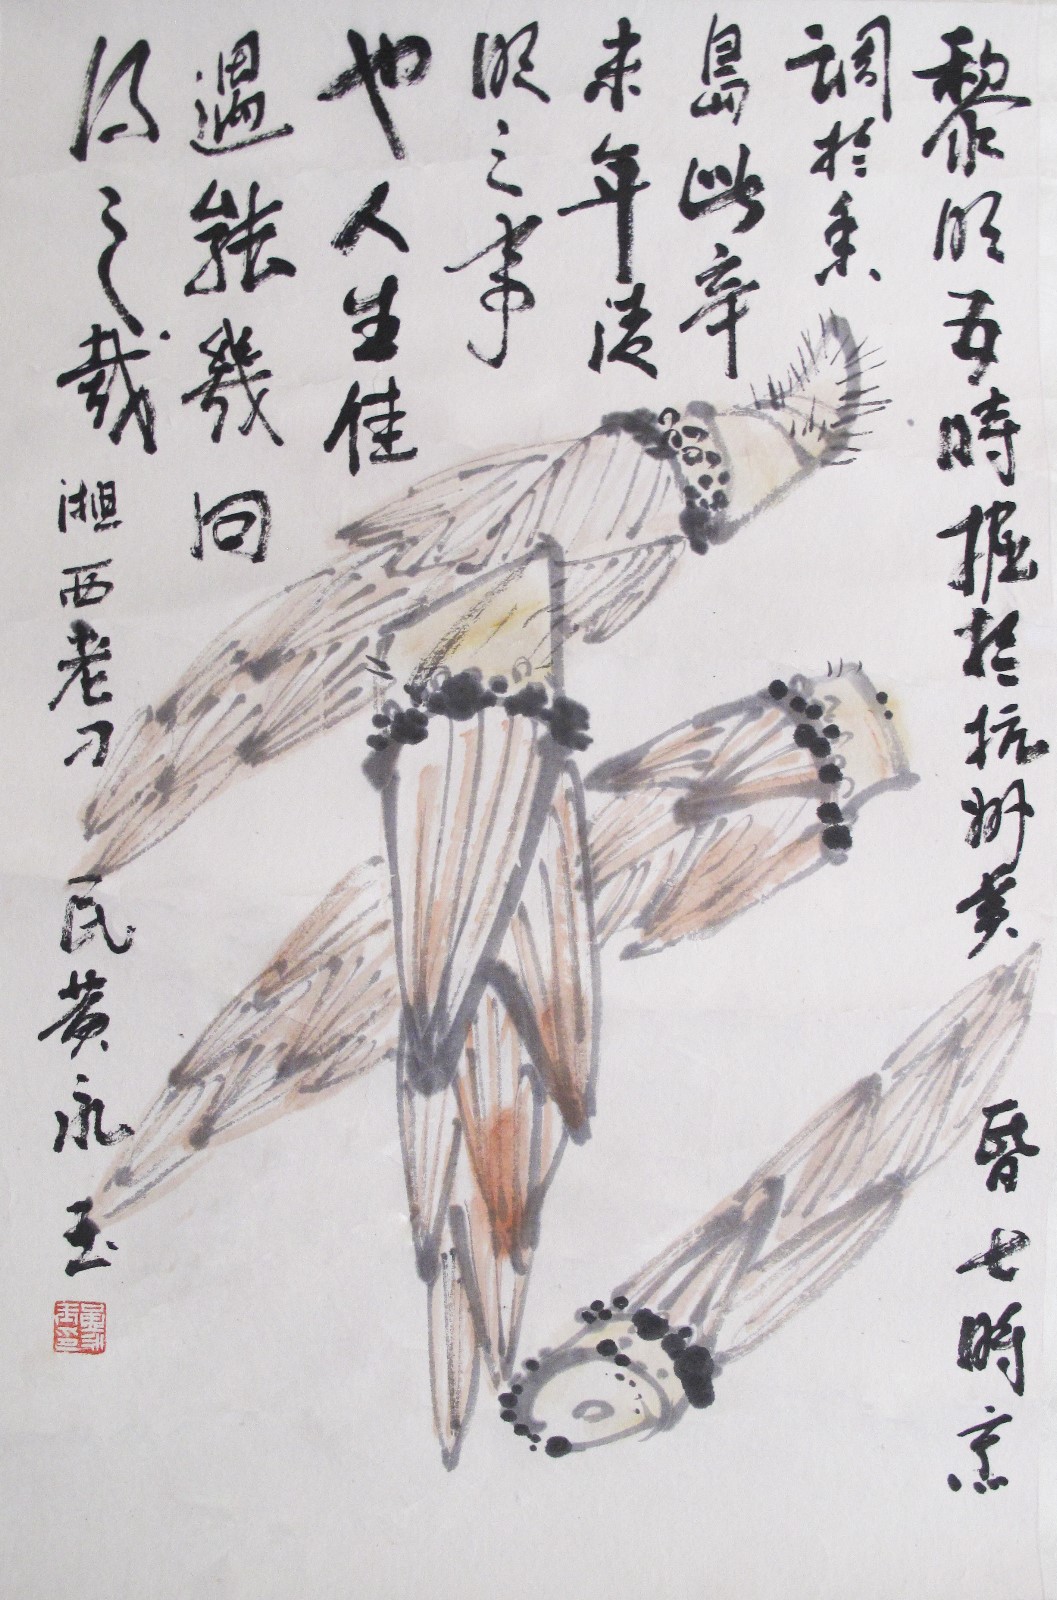 黎明五時掘於杭州黃昏七時烹
調於香
島此辛
未年清
明之事
也人生佳
遇能幾回
得之哉湘西老刁民黃永玉
黃永玉印